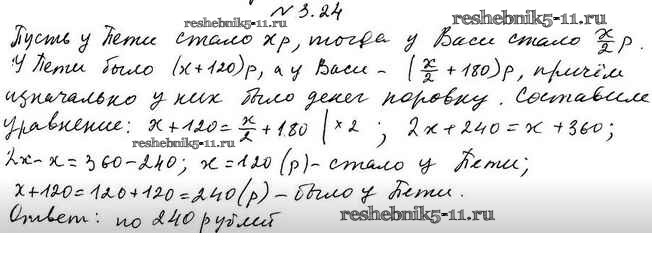 № 3.24
reshebnik5-11.ru
Пусть у Пети стало x р, тогда у Васи стало x/2 р.
У Пети было (x+120) р, а у Васи – (x/2 + 180) р, причём
изначально у них было денег поровну. Составим
уравнение: x+120 = x/2 + 180 | ×2 ; 2x + 240 = x + 360;
reshebnik5-11.ru
2x – x = 360 – 240; x = 120 (р) – стало у Пети;
x + 120 = 120 + 120 = 240 (р) – было у Пети.
Ответ: по 240 рублей
reshebnik5-11.ru